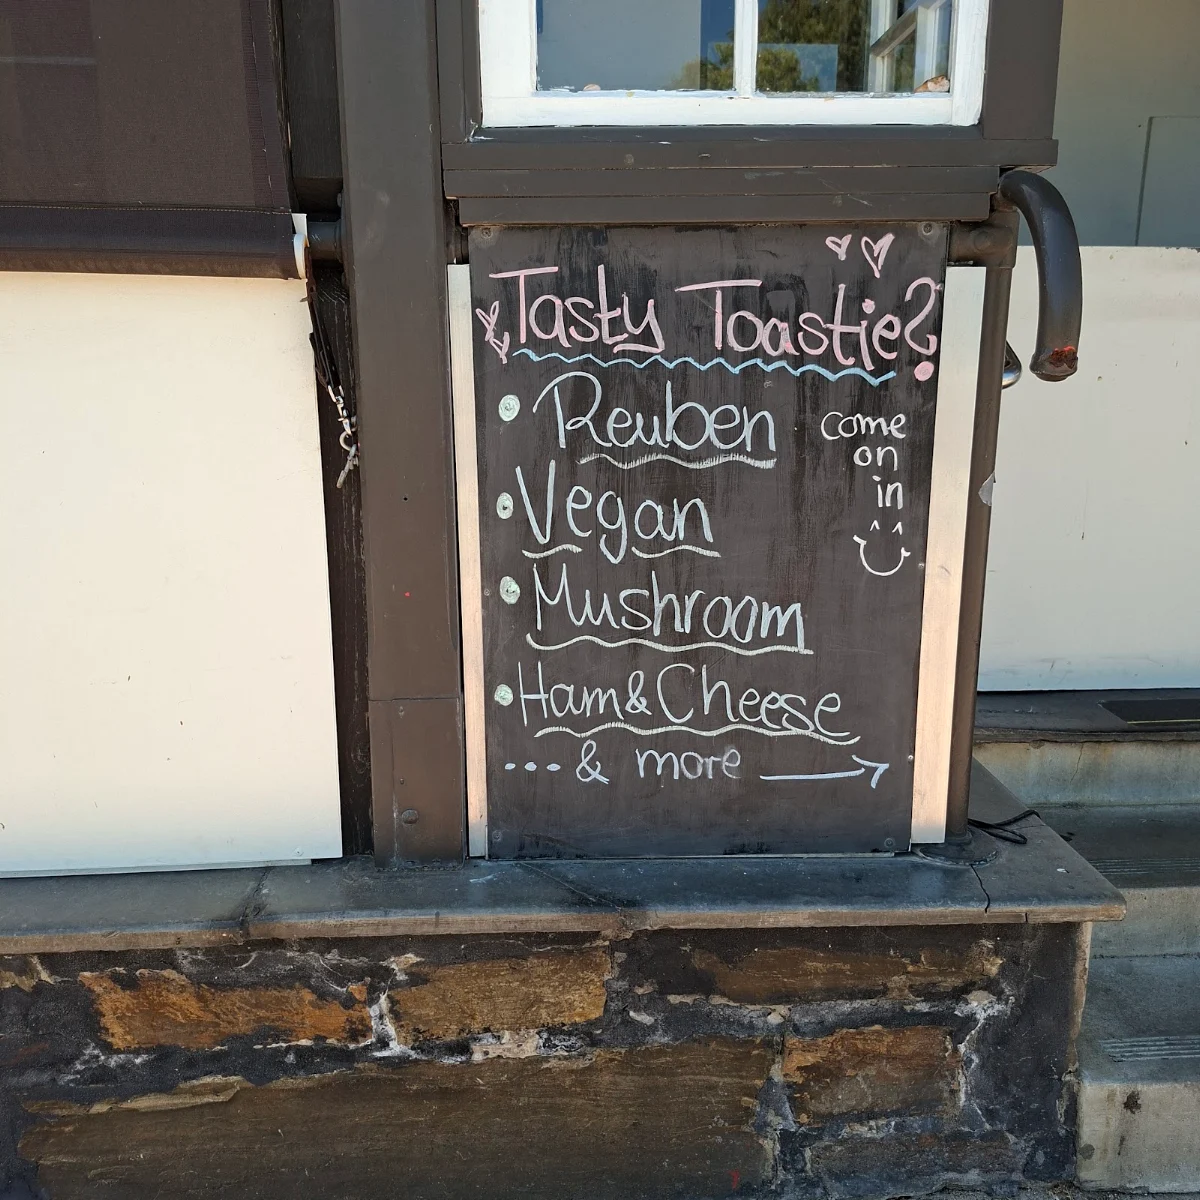 Tasty Toastie?
• Reuben
• Vegan
• Mushroom
• Ham & Cheese
... & more →
come
on
in